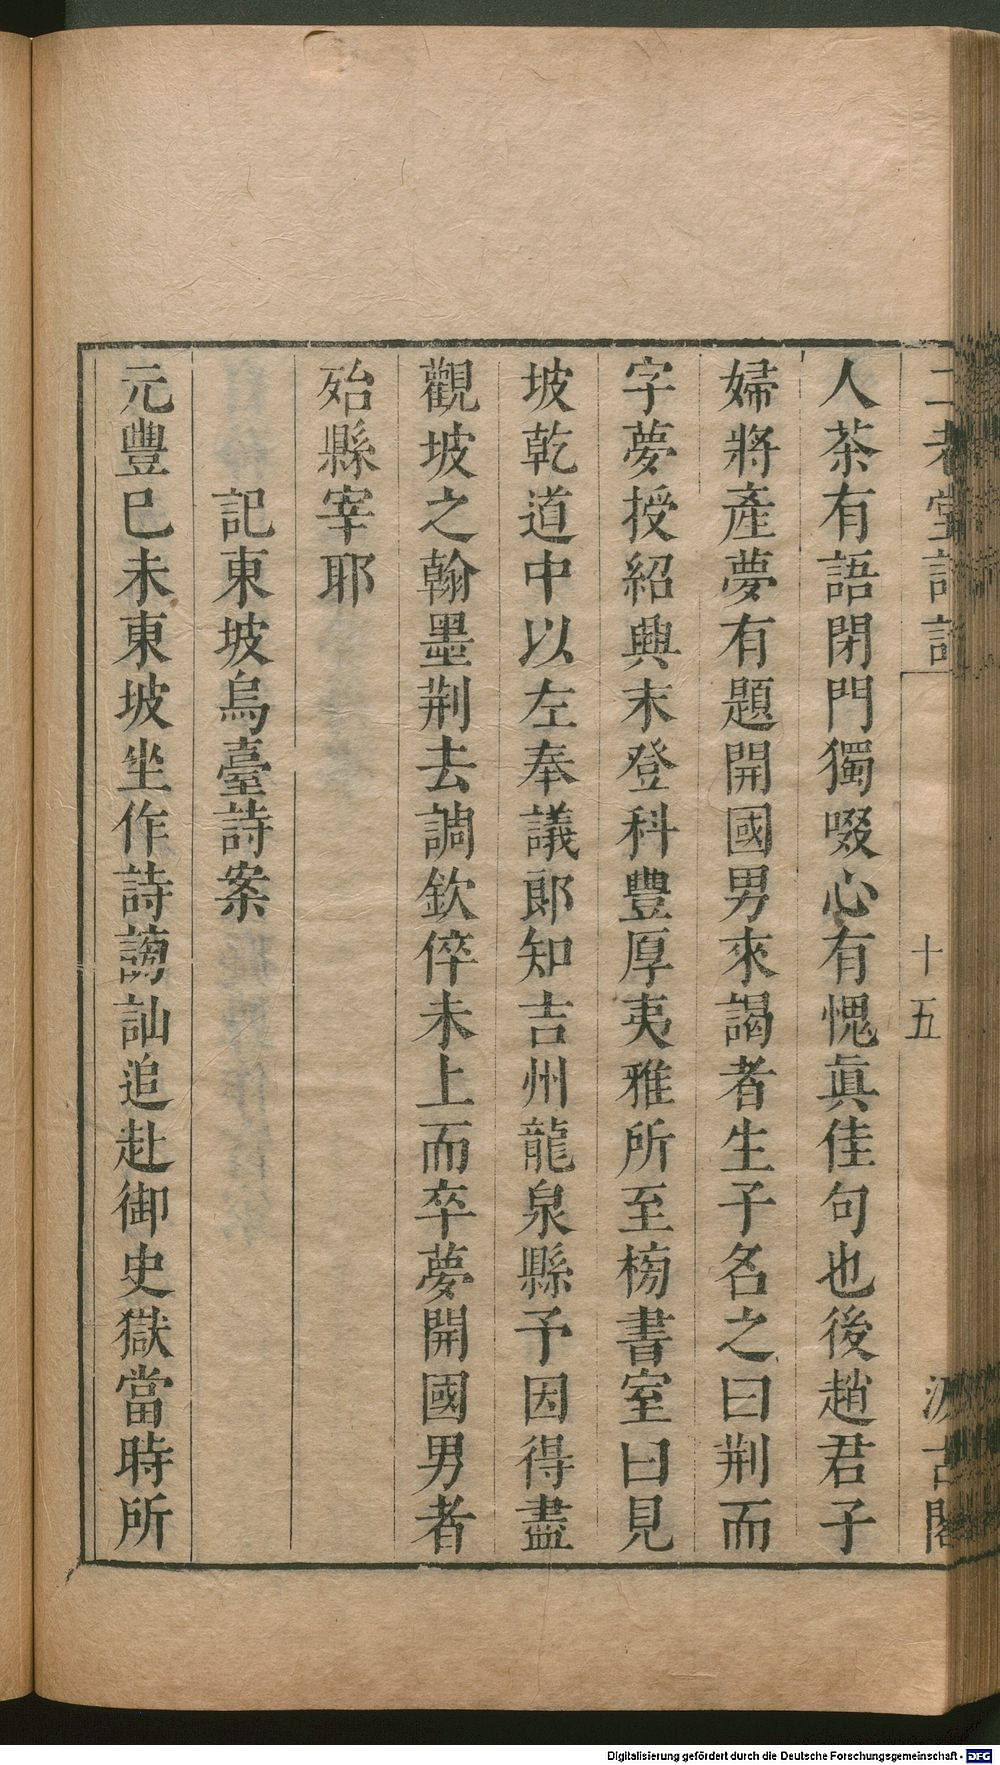 二老堂詩話
十五
汲古閣
人茶有語閉門獨啜心有愧眞佳句也後趙君子
婦將產夢有題開國男來謁者生子名之曰荆而
字夢授紹興末登科豐厚夷雅所至榜書室曰見
坡乾道中以左奉議郎知吉州龍泉縣予因得盡
觀坡之翰墨荆去調欽倅未上而卒夢開國男者
殆縣宰耶
記東坡烏臺詩案
元豐巳未東坡坐作詩謗訕追赴御史獄當時所
Digitalisierung gefördert durch die Deutsche Forschungsgemeinschaft - DFG